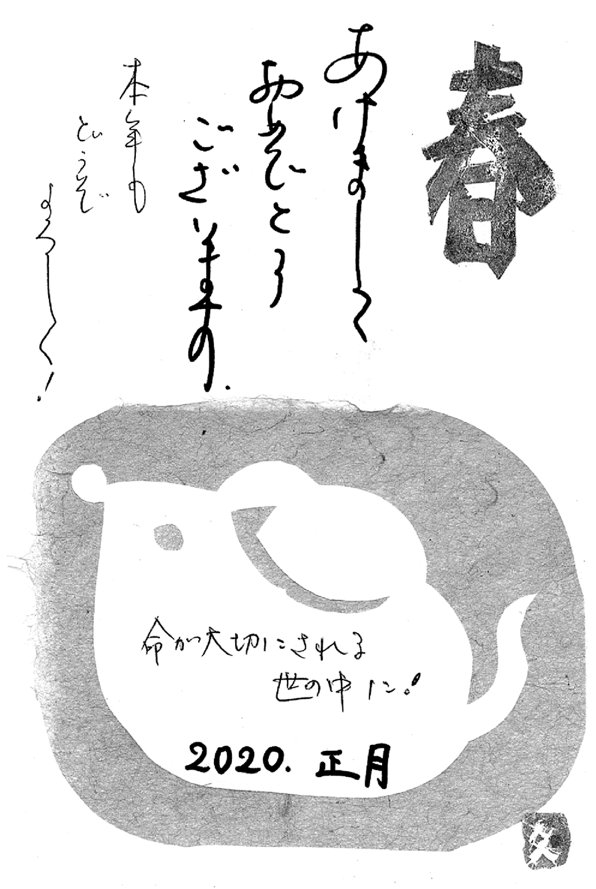 春
あけまして
おめでとう
ございます.
本年も
どうぞ
よろしく!
命が大切にされる
世の中に!
2020. 正月